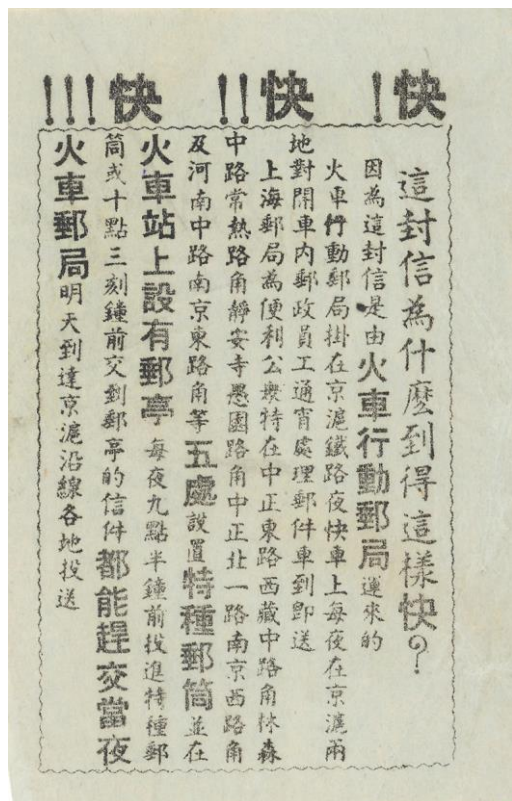 快！快！！快！！！
這封信為什麼到得這樣快？
因為這封信是由火車行動郵局運來的
火車行動郵局掛在京滬鐵路夜快車上每夜在京滬兩
地對開車內郵政員工通宵處理郵件車到即送
上海郵局為便利公衆特在中正東路西藏中路角林森
中路常熟路角靜安寺愚園路角中正北一路南京西路角
及河南中路南京東路角等五處設置特種郵筒並在
火車站上設有郵亭每夜九點半鐘前投進特種郵
筒或十點三刻鐘前交到郵亭的信件都能趕交當夜
火車郵局明天到達京滬沿線各地投送